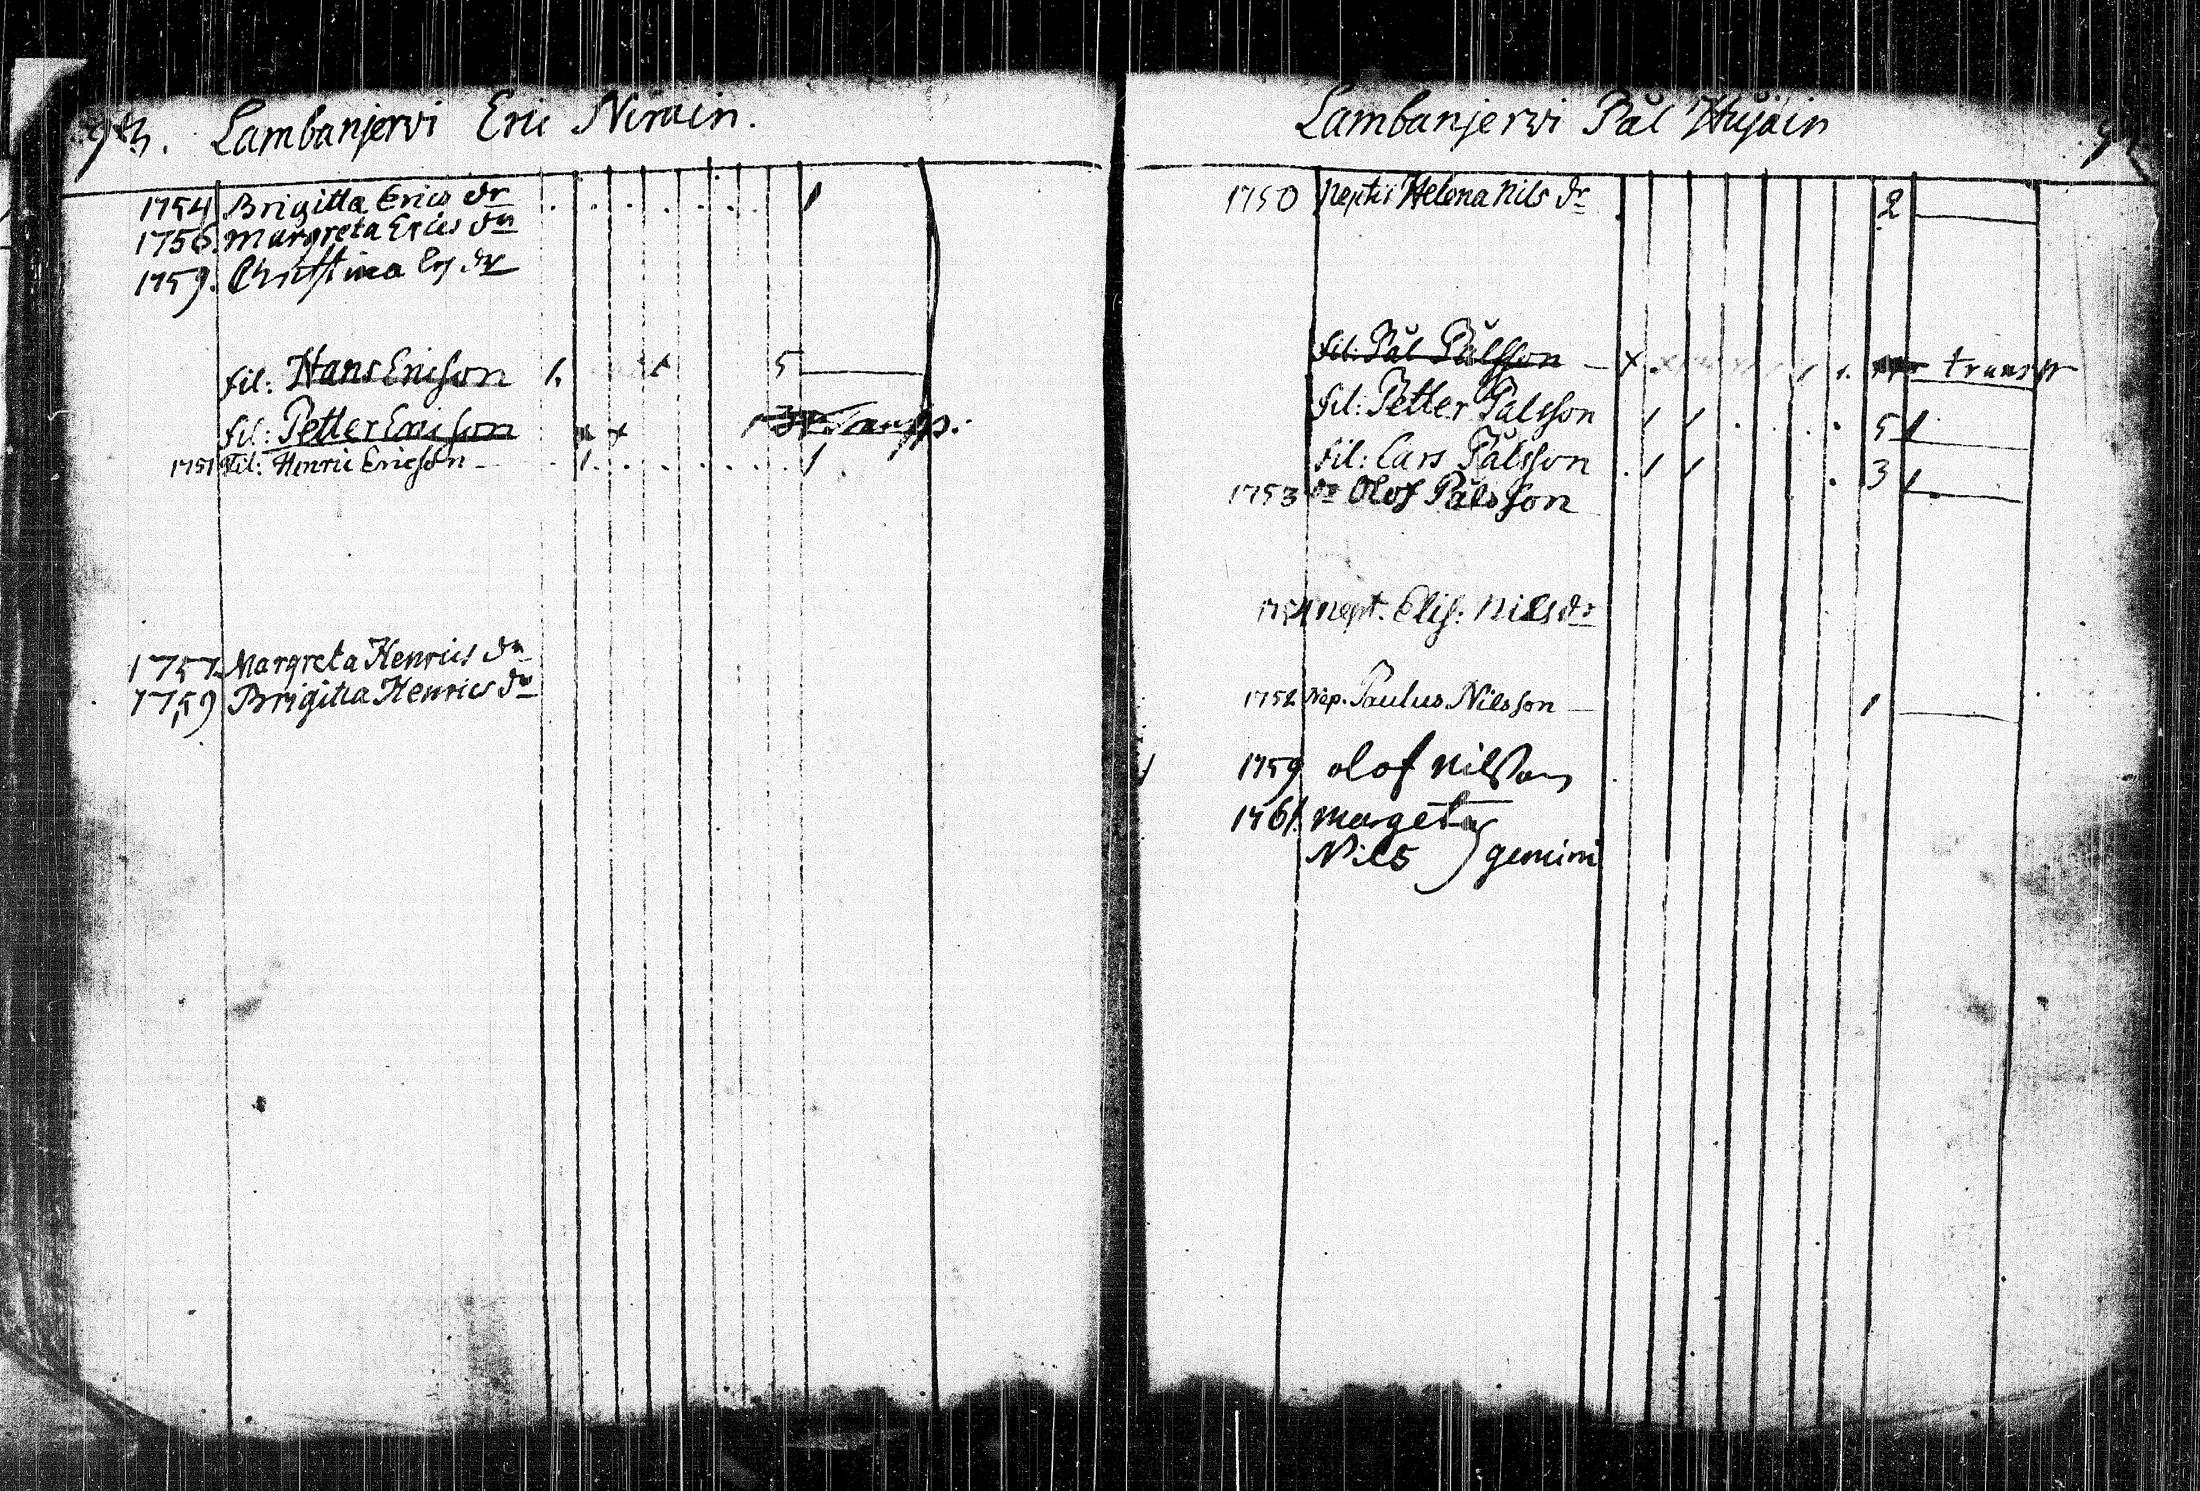 Lambanjervi Eric Nirain.
1754 Brigitta Erics dr 1
1756. Margreta Erics dr
1759. Christina Er dr
fil: Hans Ericson 1. 5
fil: Petter Ericson x x
1751 Fil: Henric Ericson 1 1
1757. Margreta Henrics dr
1759 Brigitta Henrics dr
Lambanjerwi Pål Hujain
1750 Neptis Helena Nils dr 2
fil: Pål Pålsson x transp
fil: Petter Pålsson 1 1 5 1
fil: Lars Pålsson 1 1 3 1
1753 Olof Pålsson
1754 nept. Elis: Nils dr
1752 Nep. Paulus Nilsson 1
1759 olof nilsson
1761. marget
Nils gemini